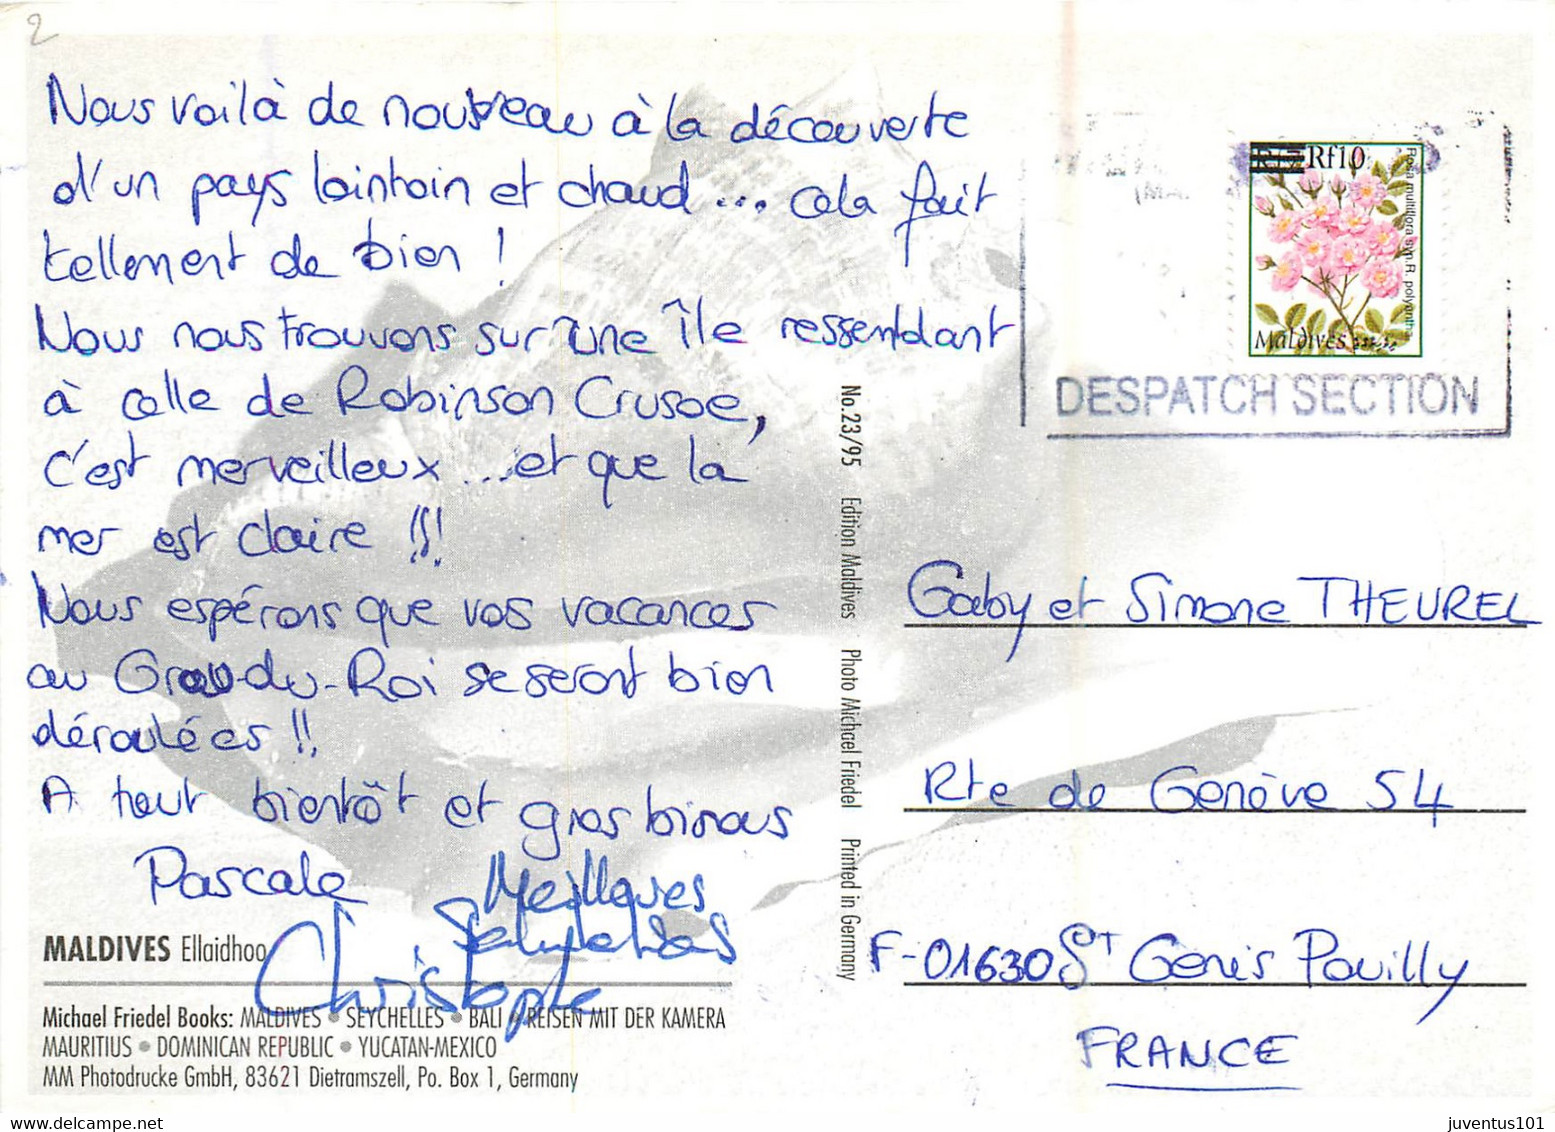 2
Nous voilà de nouveau à la découverte
d'un pays lointain et chaud ... cela fait
tellement de bien !
Nous nous trouvons sur une île ressemblant
à celle de Robinson Crusoe,
c'est merveilleux ... et que la
mer est claire !!!
Nous espérons que vos vacances
au Grau-du-Roi se seront bien
déroulées !!
A tout bientôt et gros bisous
Pascale
Meilleures
Salutations
Christophe
MALDIVES Ellaidhoo
Michael Friedel Books: MALDIVES • SEYCHELLES • BALI • REISEN MIT DER KAMERA
MAURITIUS • DOMINICAN REPUBLIC • YUCATAN-MEXICO
MM Photodrucke GmbH, 83621 Dietramszell, Po. Box 1, Germany
No.23/95 Edition Maldives Photo Michael Friedel Printed in Germany
Rf10
Rosa multiflora syn.R. polyantha
Maldives
DESPATCH SECTION
Gaby et Simone THEUREL
Rte de Genève 54
F-01630 ST Genis Pouilly
FRANCE
juventus101